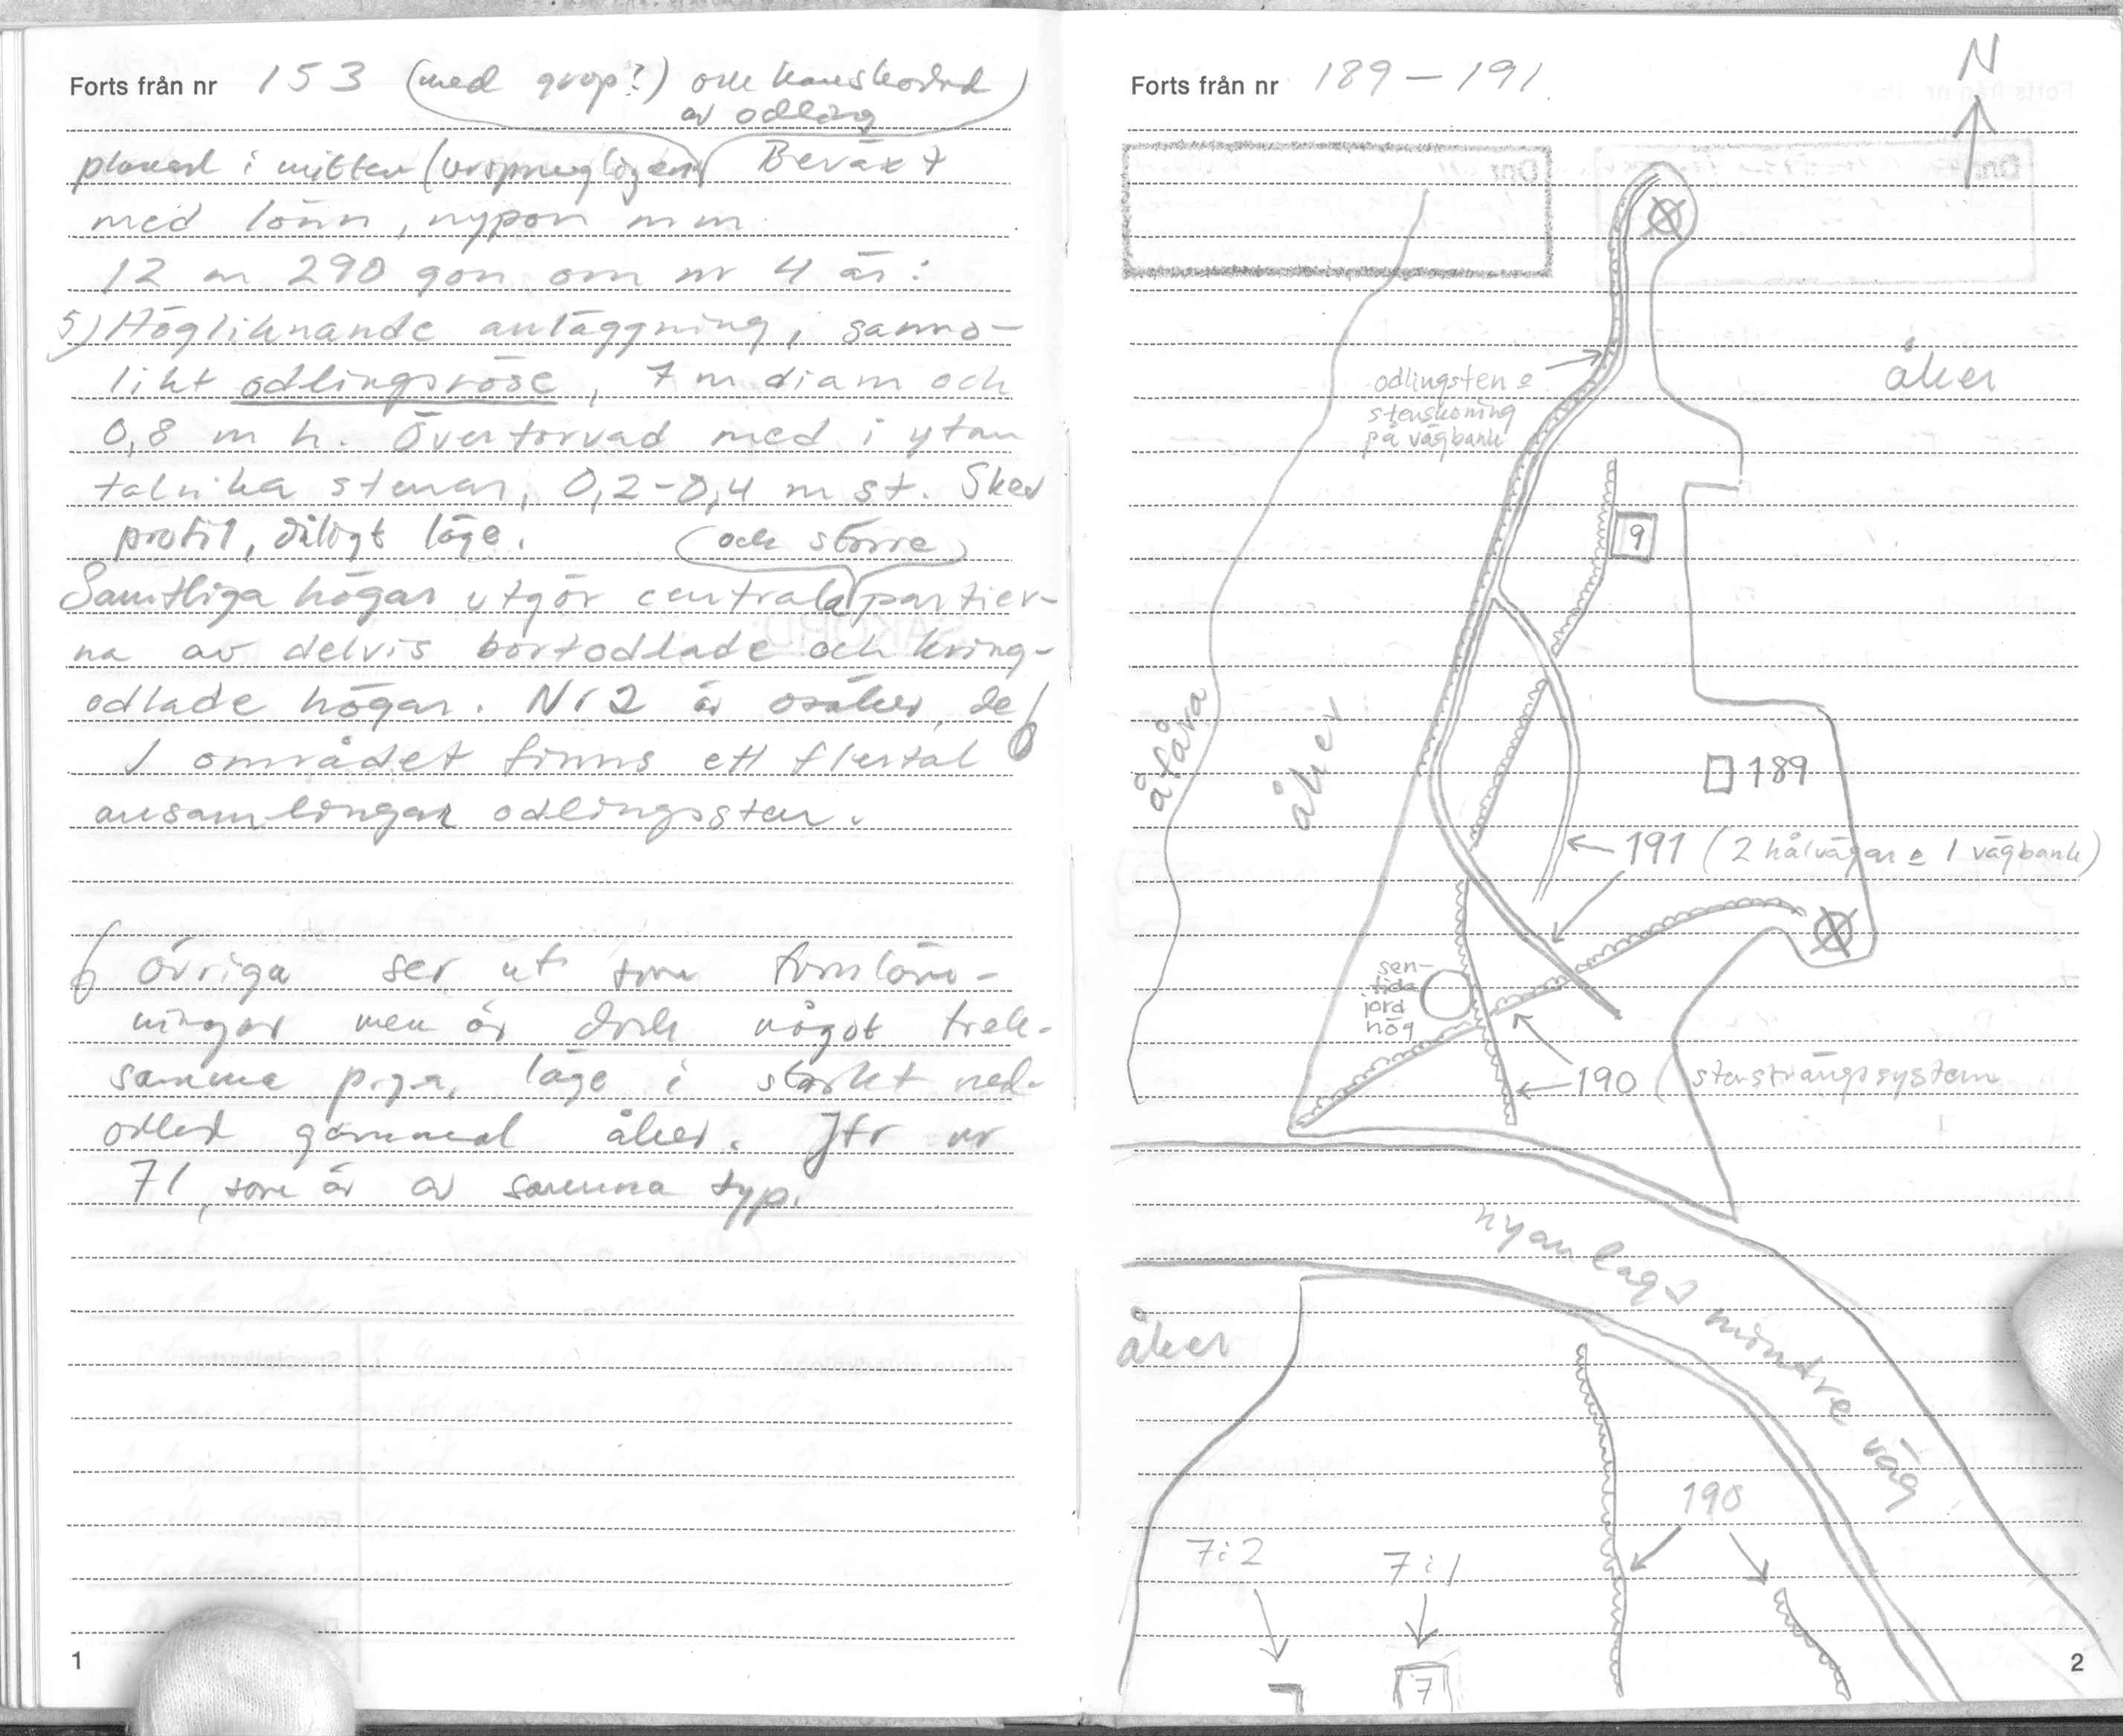 Forts från nr 153 (med grop?) och kanskadad
av odling
planad i mitten (ursprungligen) Beväxt
med lönn, nypon mm
12 m 290 gon om nr 4 är:
5) Högliknande anläggning, sanno-
likt odlingsröse, 7 m diam och
0,8 m h. Övertorvad med i ytan
talrika stenar, 0,2-0,4 m st. Sked
profil, dåligt läge.
(och större)
Samtliga högar utgör centrala partier-
na av delvis bortodlade och kring-
odlade högar. Nr 2 är osäker, de
I området finns ett flertal
ansamlingar odlingssten.
övriga ser ut som fornläm-
ningar men är dock något tvek-
samma p.g.a. läge i starkt ned-
odlad gammal åker. Jfr nr
71, som är av samma typ.
1
Forts från nr 189-191
N
åker
odlingsten e
stenskoning
på vägbank
9
åfåra
åker
189
191 (2 hålvägar e 1 vägbank)
sen-
tida
jord
hög
190 (stensträngssystem
nyanlagd mindre väg
åker
190
7:2
7:1
7
2